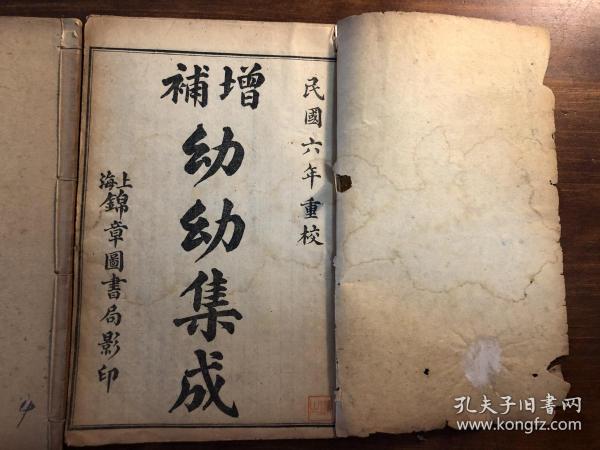 民國六年重校
增補
幼幼集成
上海錦章圖書局影印
4
孔夫子旧書网
www.kongfz.com